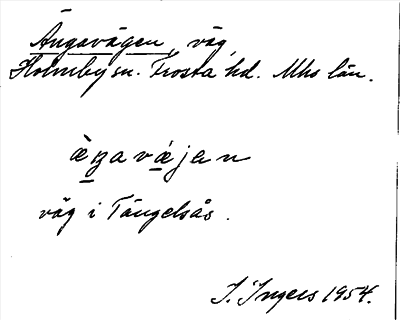 Ängavägen, väg,
Holmby sn. Frosta hd. Mhs län.
æ̀ŋavǽjen
väg i Tängelsås.
I. Ingers 1954.